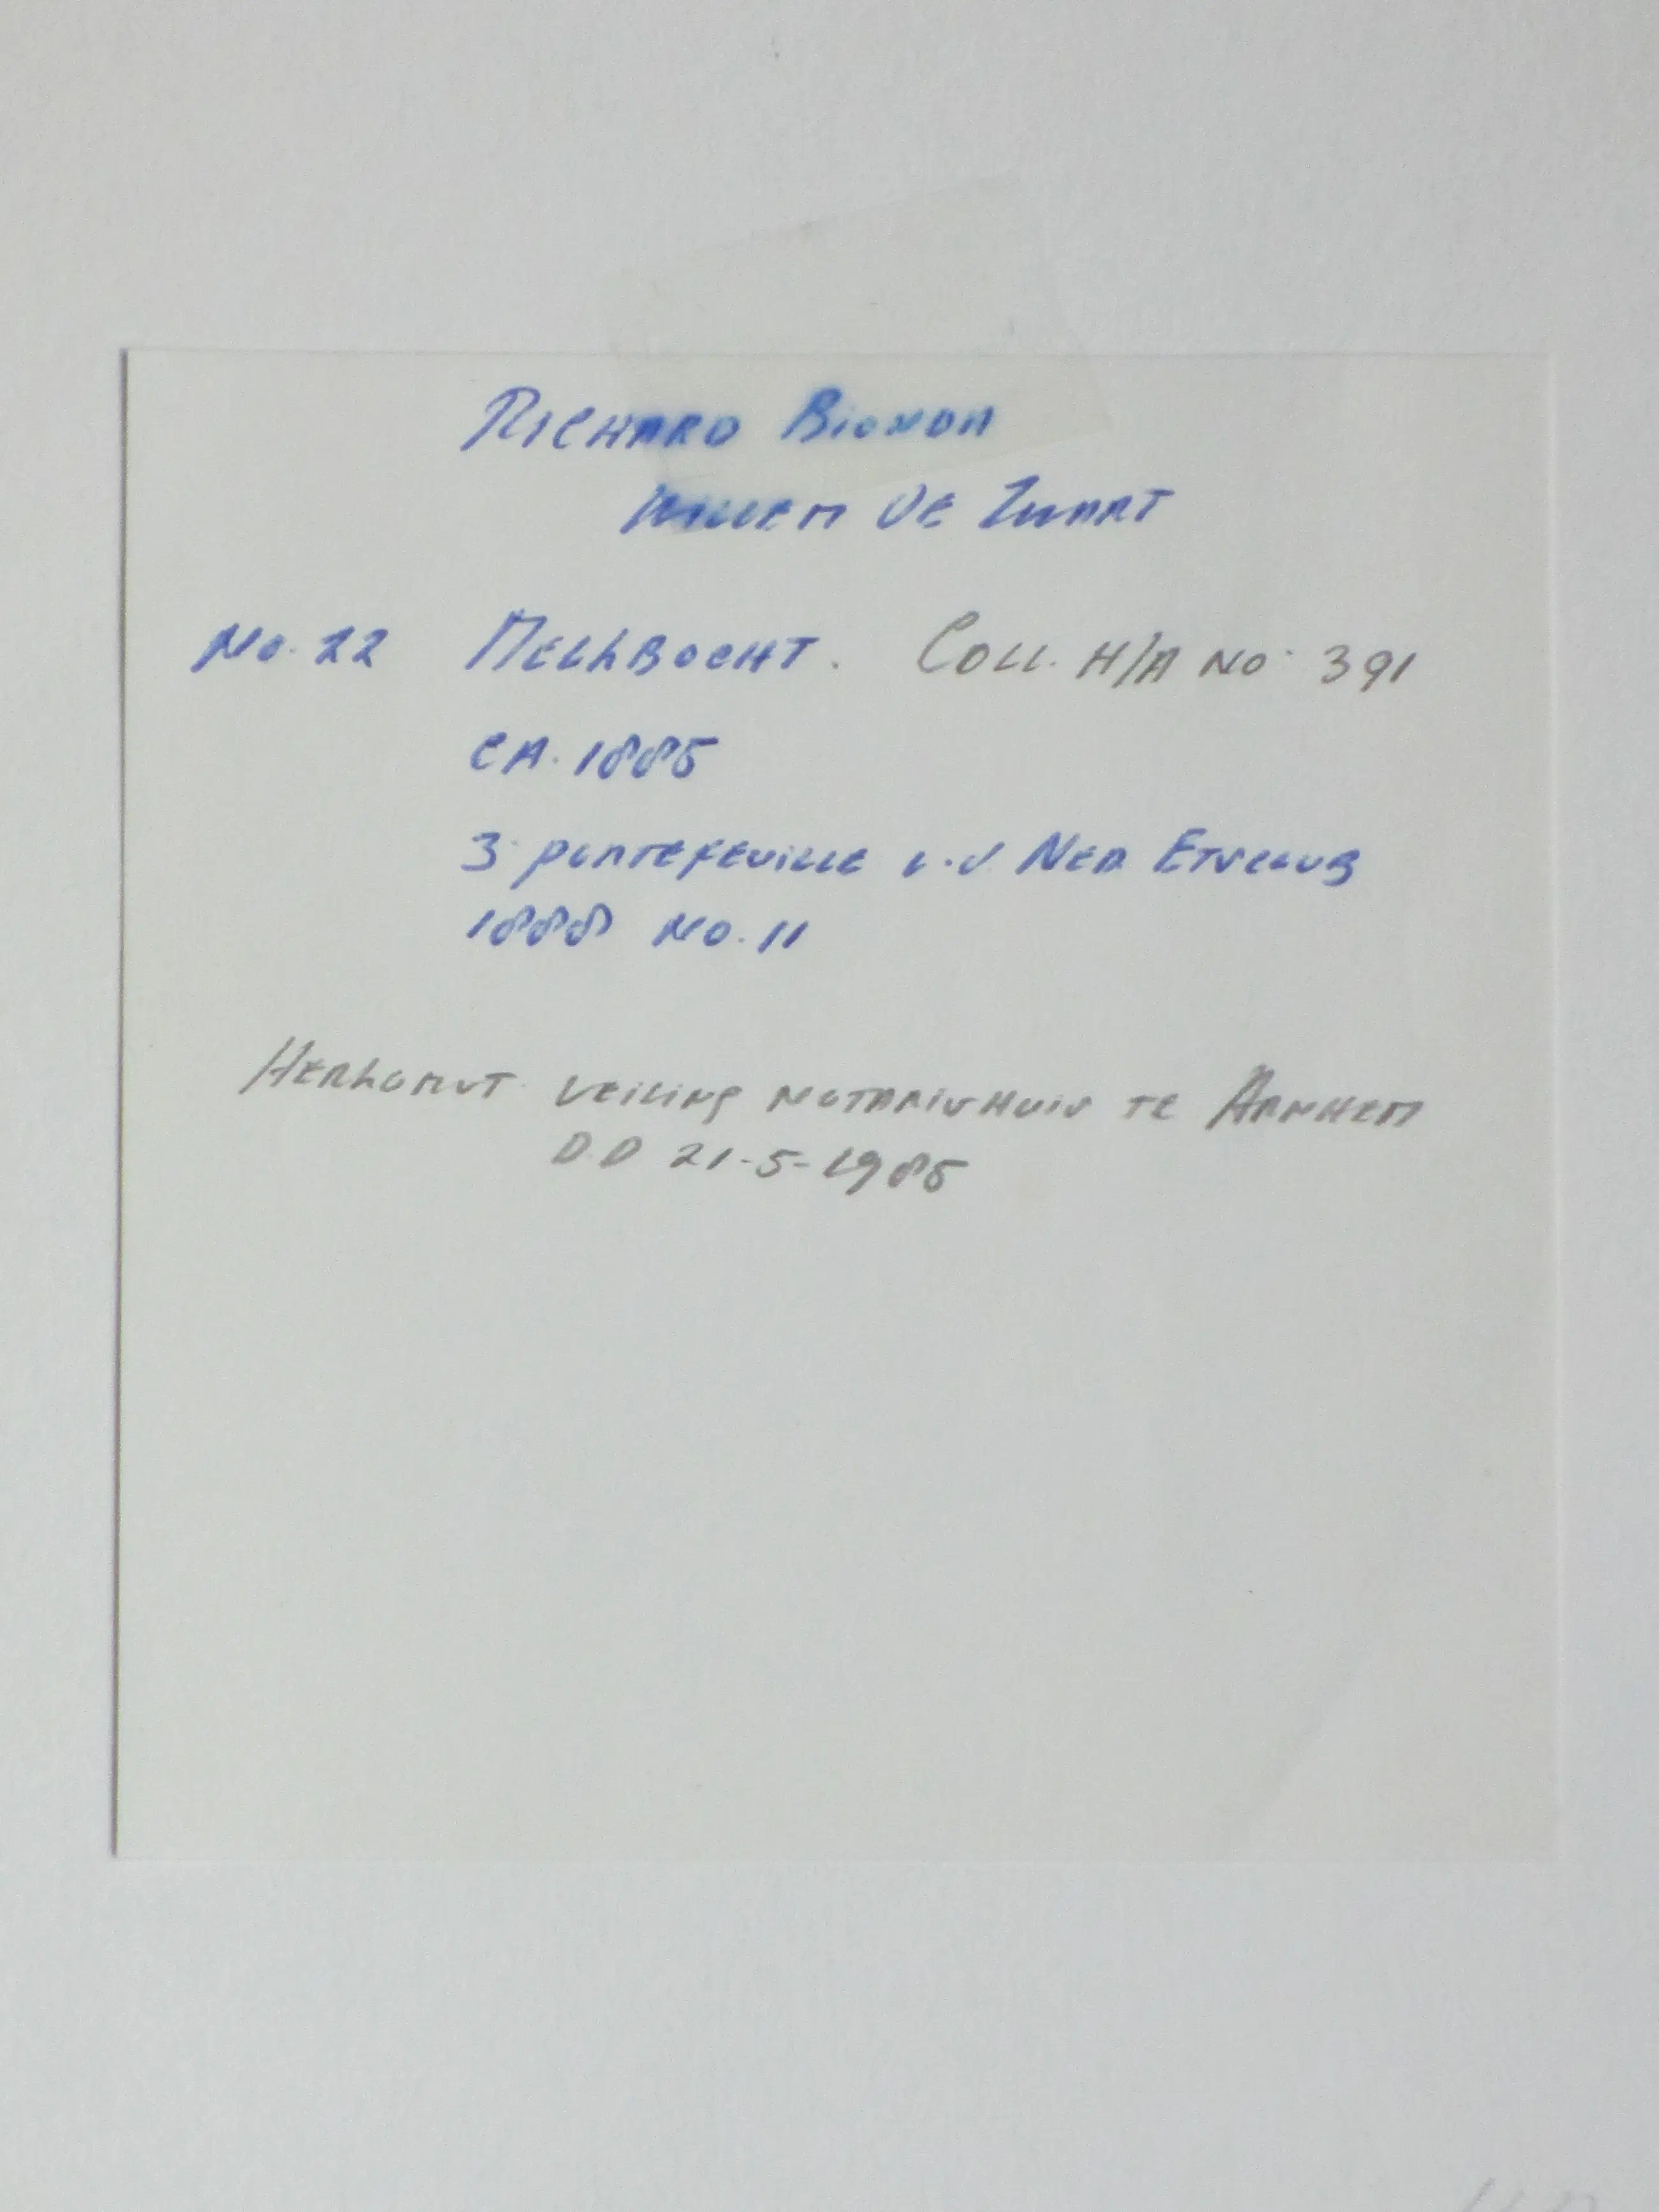 RICHARD BIONDA
WILLEM DE ZWART
No. 22 MELKBOCHT. COLL. H/A NO. 391
CA. 1885
3e PORTEFEUILLE v.d NED ETSCLUB
1888 NO. 11
HERKOMST VEILING NOTARISHUIS TE ARNHEM
D.D 21-5-1985